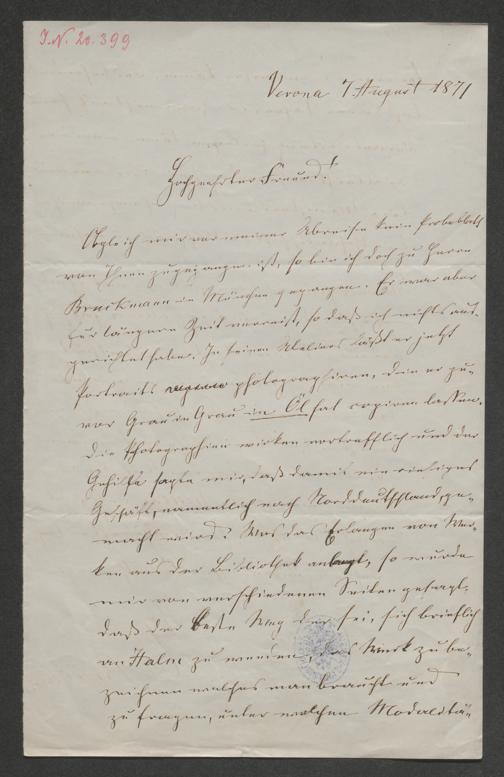 I.N. 20.399
Verona 7 August 1871
Hochgeehrter Freund!
Obgleich mir vor meiner Abreise kein Probeblatt
von Ihnen zugegangen ist, so bin ich doch zu Herrn
Bruckmann in München gegangen. Er war aber
für längere Zeit verreist, so daß ich nichts aus-
gerichtet habe. In seinen Ateliers läßt er jetzt
Portraits photographiren, die er zu-
vor Grau in Grau in Öl hat copiren lassen.
Die Photographien wirken vortrefflich und der
Gehilfe sagte mir, daß damit ein riesiges
Geschäft, namentlich nach Norddeutschland, ge-
macht wird. Was das Erlangen von Wer-
ken aus der Bibliothek anlangt, so wurde
mir von verschiedenen Seiten gesagt,
daß der beste Weg der sei, sich brieflich
an Halm zu wenden, das Werk zu be-
zeichnen welches man braucht und
zu fragen, unter welchen Modalitä-